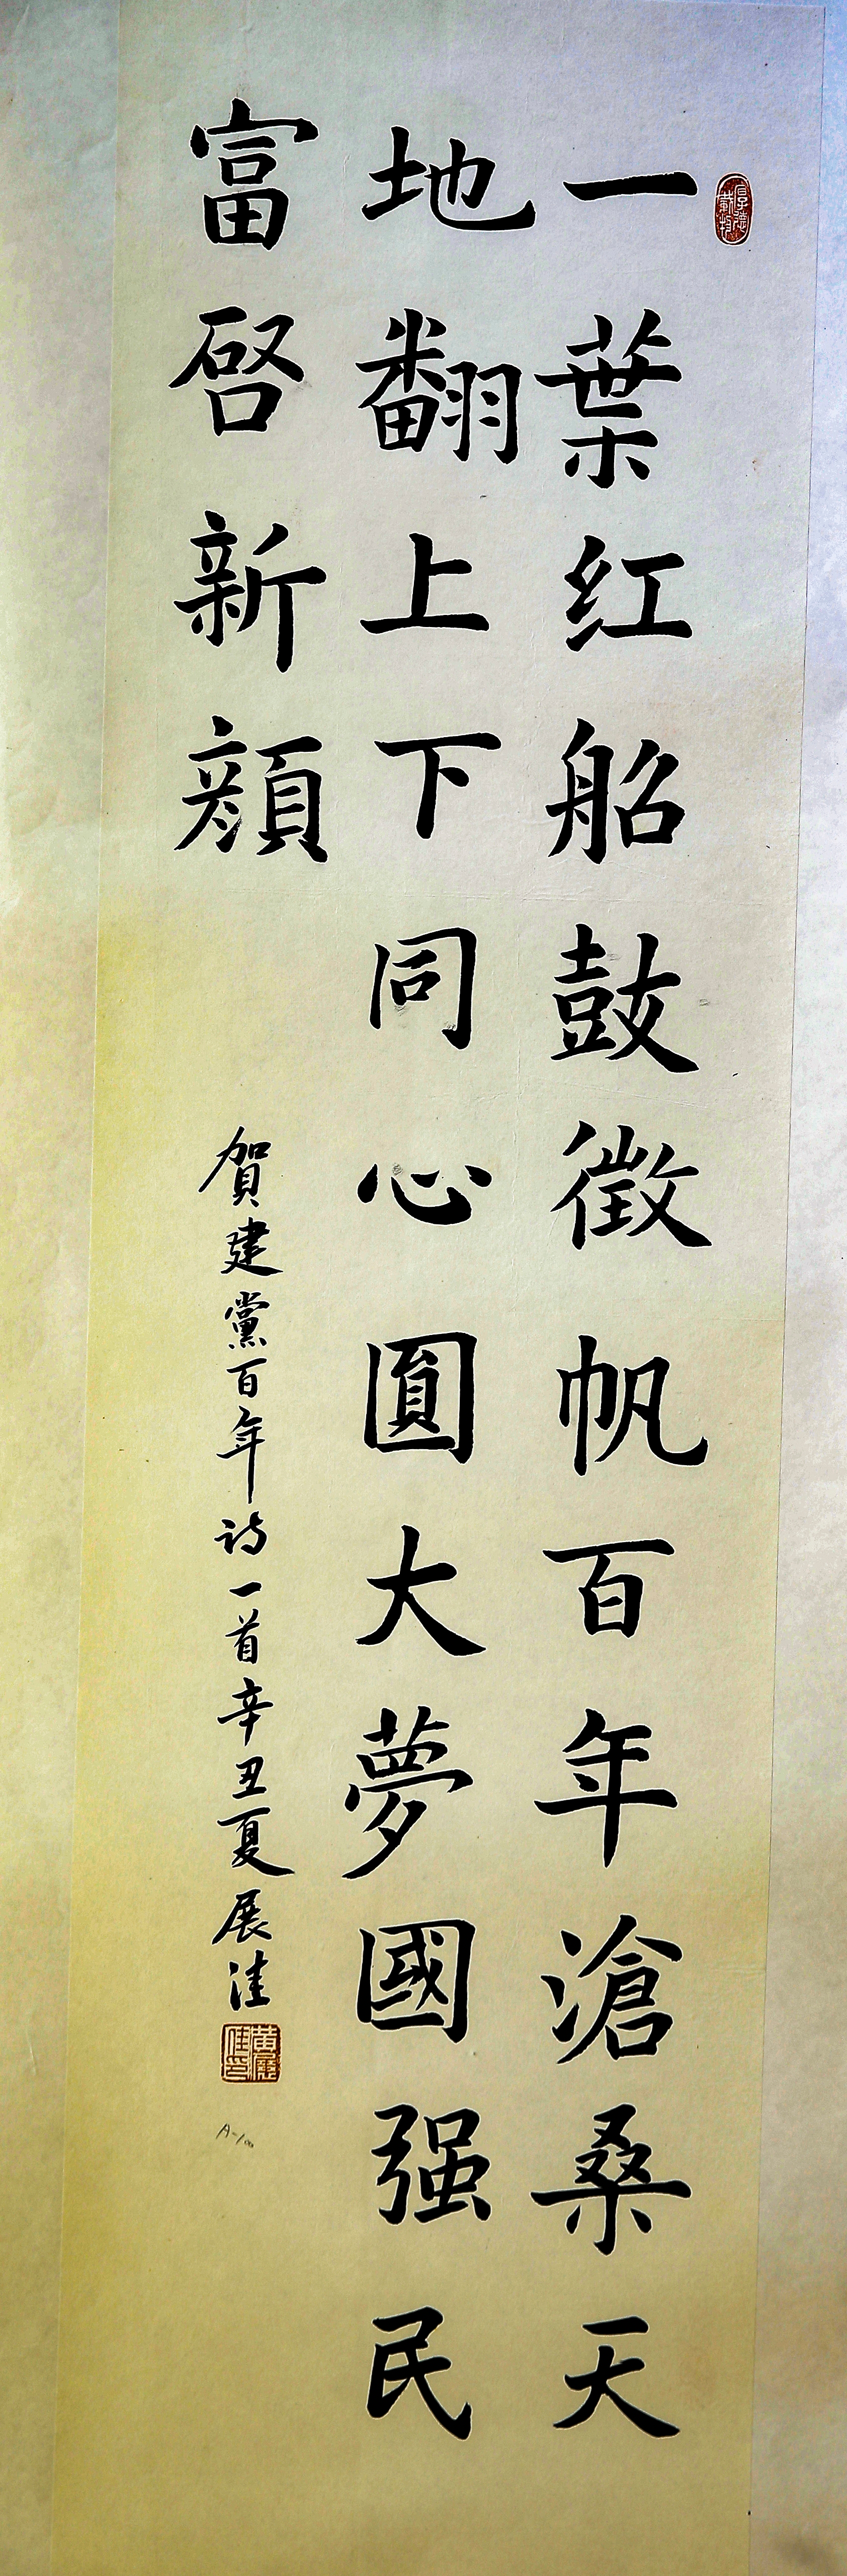 厚德載物
一葉红船鼓徵帆百年滄桑天
地翻上下同心圓大夢國强民
富啓新顔
賀建黨百年诗一首辛丑夏展洼
黄展佳印